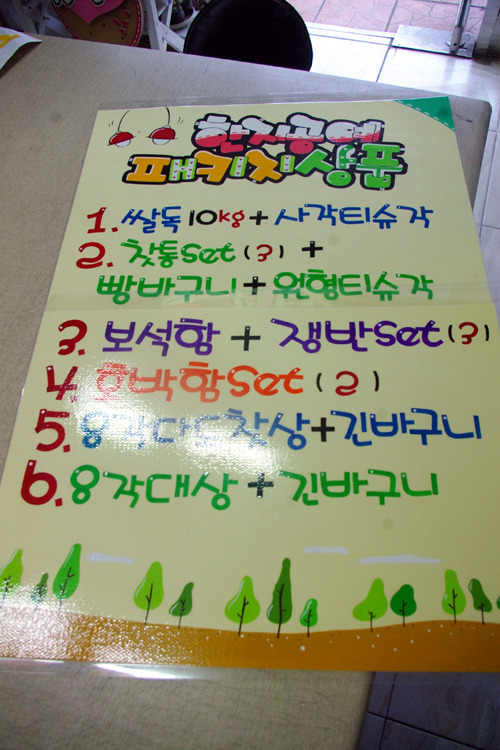 한지공예
패키지상품
1. 쌀독 10kg + 사각티슈각
2. 찻통set (3) +
빵바구니 + 원형티슈각
3. 보석함 + 쟁반set (3)
4. 호박함set (2)
5. 8각다도찻상+긴바구니
6. 8각대상 + 긴바구니